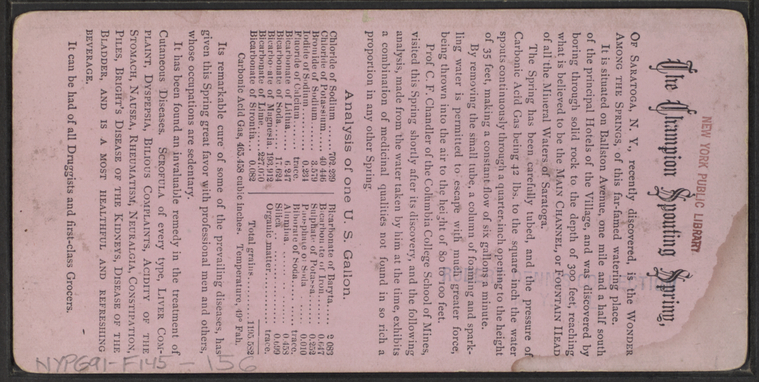 NEW YORK PUBLIC LIBRARY
The Champion Spouting Spring,
OF SARATOGA, N. Y., recently discovered, is the WONDER
AMONG THE SPRINGS, of this far-famed watering place.
It is situated on Ballston Avenue, one mile and a half south
of the principal Hotels of the Village, and was discovered by
boring through solid rock to the depth of 300 feet, reaching
what is believed to be the MAIN CHANNEL, or FOUNTAIN HEAD
of all the Mineral Waters of Saratoga.
The Spring has been carefully tubed, and the pressure of
Carbonic Acid Gas being 42 lbs. to the square inch the water
spouts continuously through a quarter-inch opening to the height
of 35 feet, making a constant flow of six gallons a minute.
By removing the small tube, a column of foaming and spark-
ling water is permitted to escape with much greater force,
being thrown into the air to the height of 80 to 100 feet.
Prof C. F. Chandler of the Columbia College School of Mines,
visited this Spring shortly after its discovery, and the following
analysis, made from the water taken by him at the time, exhibits
a combination of medicinal qualities not found in so rich a
proportion in any other Spring
Analysis of one U. S. Gallon.
Chloride of Sodium 702.239
Chloride of Potassium 40.446
Bromide of Sodium 3.579
Iodide of Sodium 0.234
Fluoride of Calcium trace.
Bicarbonate of Lithia 6.247
Bicarbonate of Soda 17.624
Bicarbonate of Magnesia 193.912
Bicarbonate of Lime 227.070
Bicarbonate of Strontia 0.082
Bicarbonate of Baryta 2.083
Bicarbonate of Iron 0.647
Sulphate of Potassa 0.252
Phosphate of Soda 0.010
Biborate of Soda trace.
Alumina 0.458
Silica 0.699
Organic matter trace.
Total grains 1195.582
Carbonic Acid Gas, 465.458 cubic inches. Temperature, 49° Fah.
Its remarkable cure of some of the prevailing diseases, has
given this Spring great favor with professional men and others,
whose occupations are sedentary.
It has been found an invaluable remedy in the treatment of
Cutaneous Diseases. SCROFULA of every type, LIVER COM-
PLAINT, DYSPEPSIA, BILIOUS COMPLAINTS, ACIDITY OF THE
STOMACH, NAUSEA, RHEUMATISM, NEURALGIA, CONSTIPATION,
PILES, BRIGHT'S DISEASE OF THE KIDNEYS, DISEASE OF THE
BLADDER, AND IS A MOST HEALTHFUL AND REFRESHING
BEVERAGE.
It can be had of all Druggists and first-class Grocers.
NYPG91-F145-156